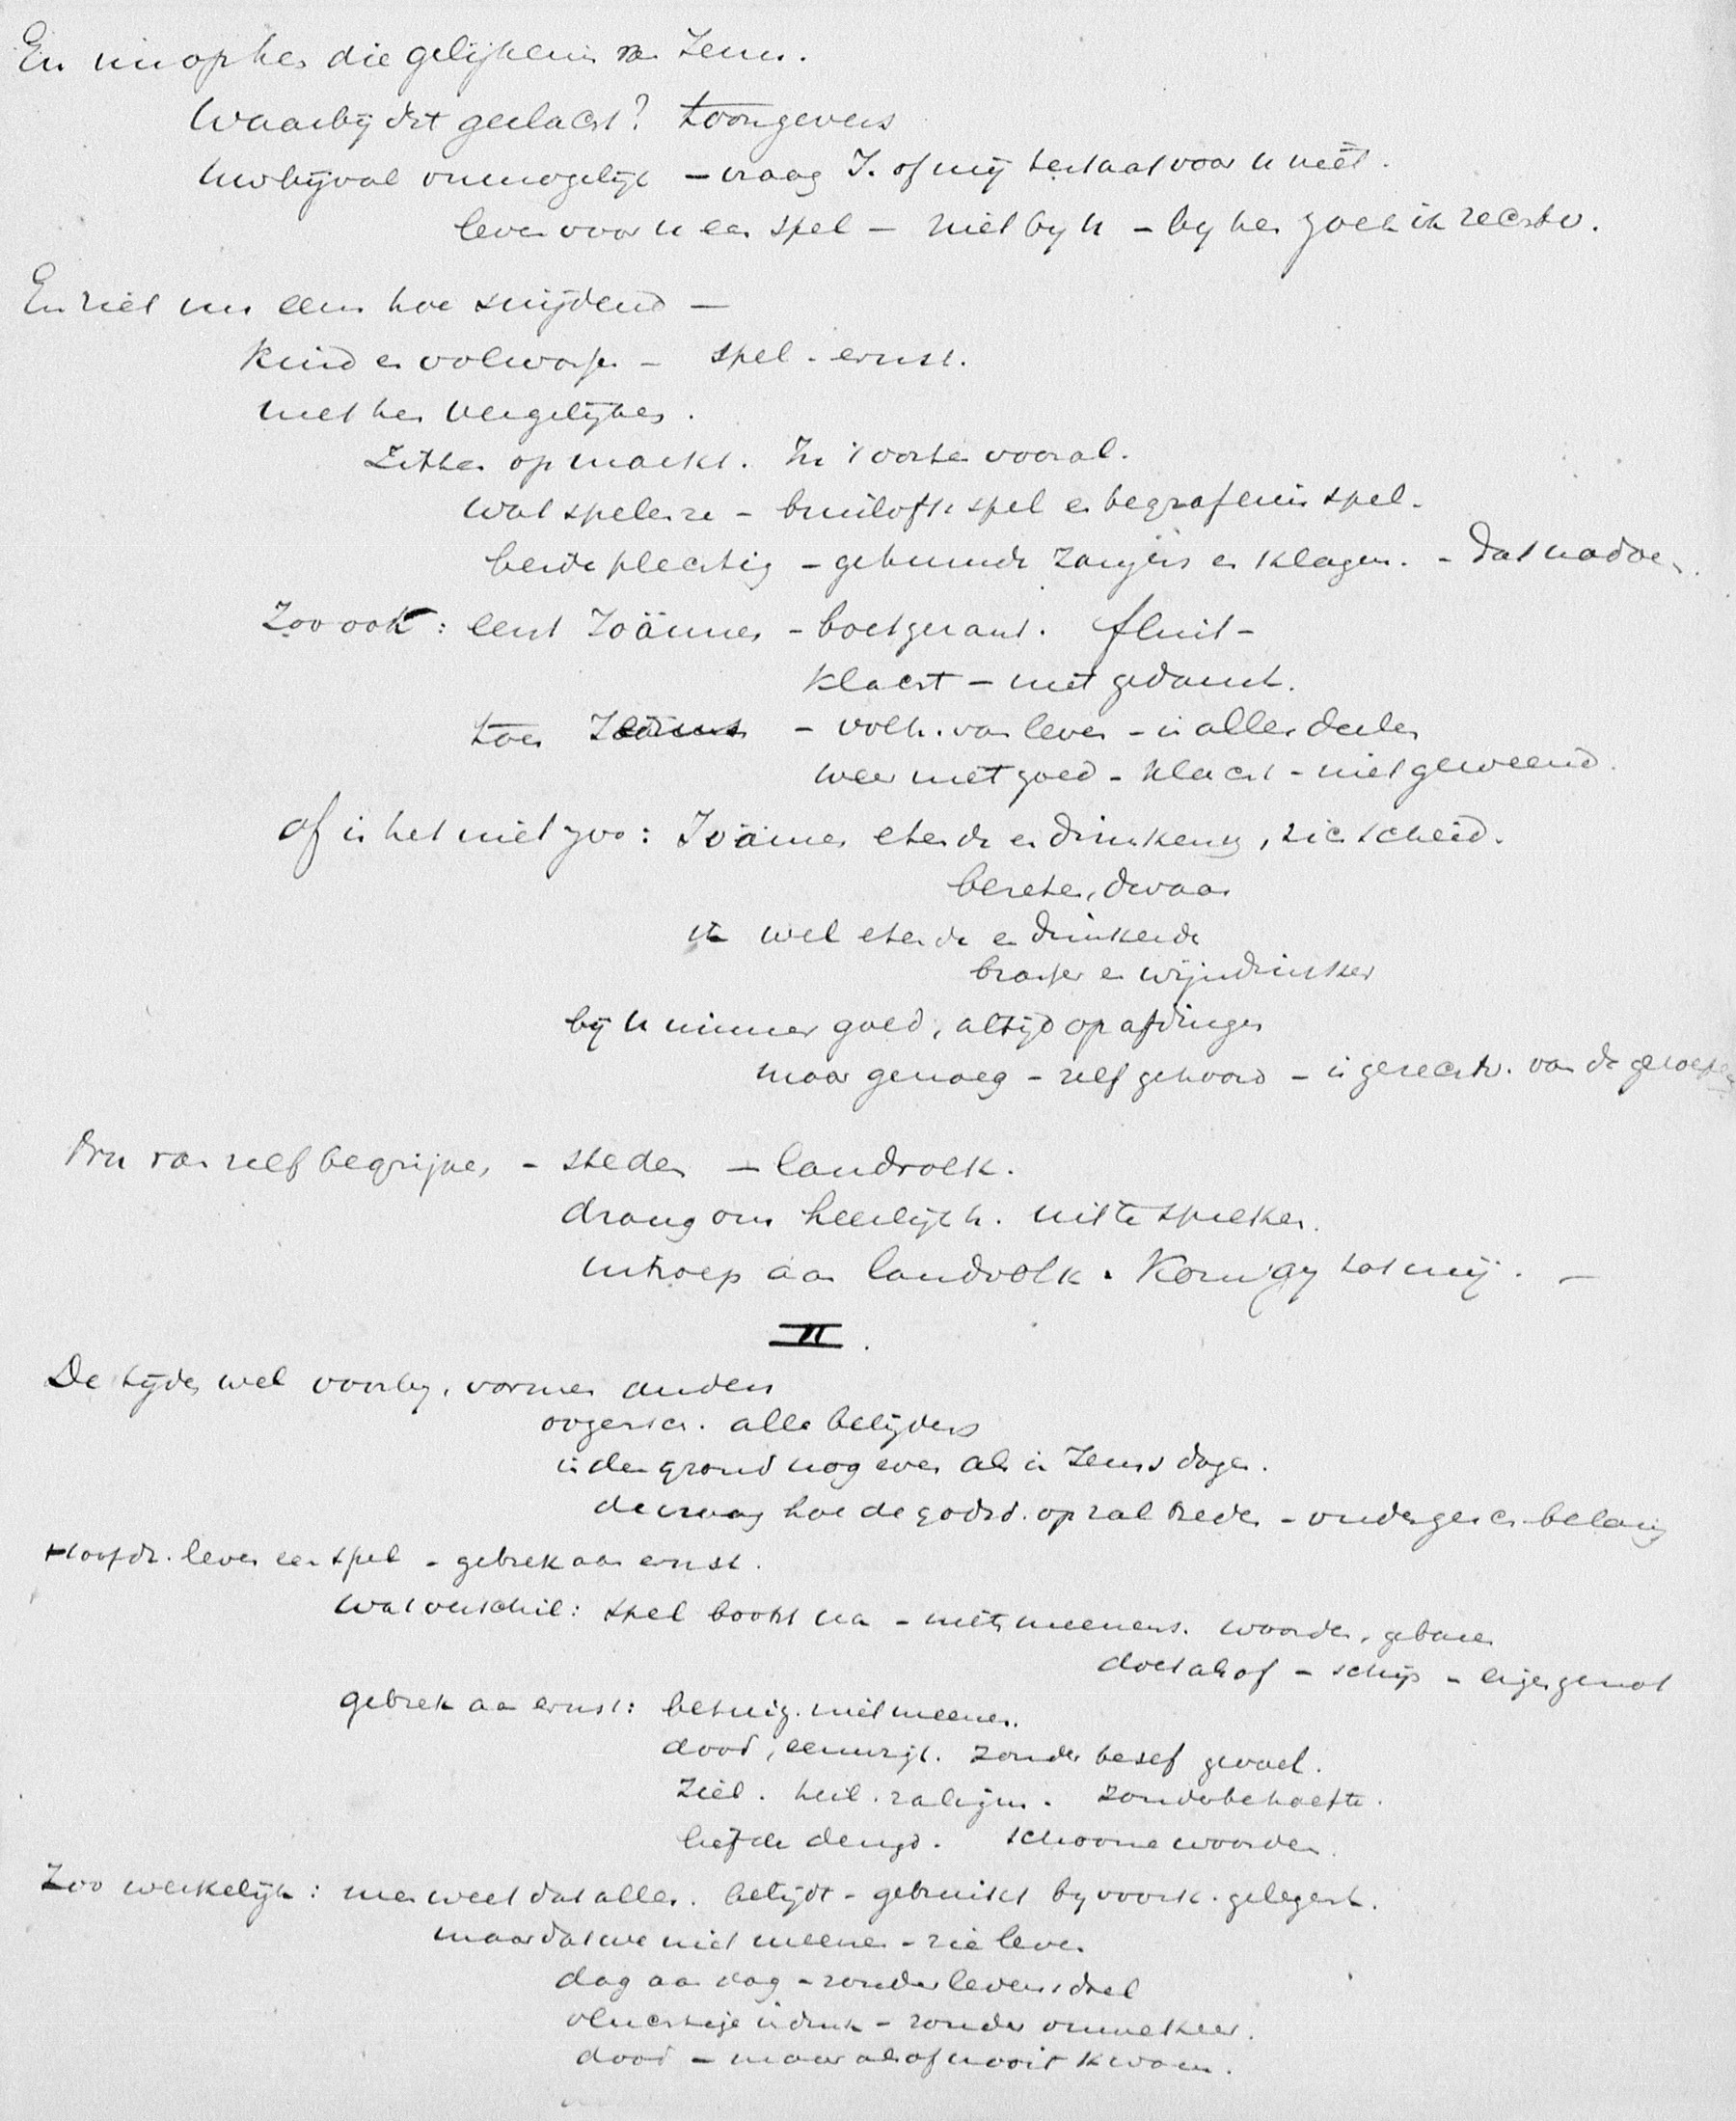 En nu op hen die gelijkenis van Jezus.
Waarbij dit geslacht? toongevers
Uw bijval onmogelijk – vraag J. of mij bestaat voor u niet.
leven voor u een spel – niet by u – by hen zoek ik rechtv.
En ziet nu eens hoe snijdend –
Kind en volwassen – spel - ernst.
met hen vergelijken.
Zitten op markt. In 't oosten vooral.
Wat spelen ze – bruilofts spel en begrafenis spel.
beide plechtig – gehuurde zangers en klagers. – Dat nadoen.
Zoo ook: eerst Joännes – boetgezant. fluit –
klacht – niet gedanst.
toen Jezus – volh. van leven – in alles deelen
weer niet goed – klacht – niet geweend.
Of is het niet zoo: Joännes etende en drinkende, zich scheid.
bezeten, dwaas
ik wel etende en drinkende
brasser en wijndrinker
bij u nimmer goed, altijd op afdingen
maar genoeg – zelf gehoord – is gerechtv. van de
Dru van zelf begrijpen – steden – landvolk.
drang om heerlijkh. uit te spreken.
uitroep aan landvolk. Kom gy tot mij. –
II.
De tijden wel voorby, vormen anders
oogensch. alle belijders
in den grond nog even als in Jezus dagen.
de vraag hoe de godsd. op zal treden – ondergesch. belang
Hoofdz. leven een spel – gebrek aan ernst.
Wat verschil: Spel bootst na – niets meenens. woorden, gebaren
doet alsof – schijn – eigen genot
gebrek aan ernst: betuig. niet meenen.
dood, eeuwigh. zonder besef gevoel.
Ziel. heil. zaligm. zonder behoefte.
liefde deugd. schoone woorden.
Zoo werkelijk: men weet dat alles. belijdt – gebruikt by voork. gelegenh.
maar dat we niet meenen – zie leven
dag aan dag – zonder levensdoel
vluchtige indruk – zonder ommekeer.
dood – maar alsof nooit kwam.